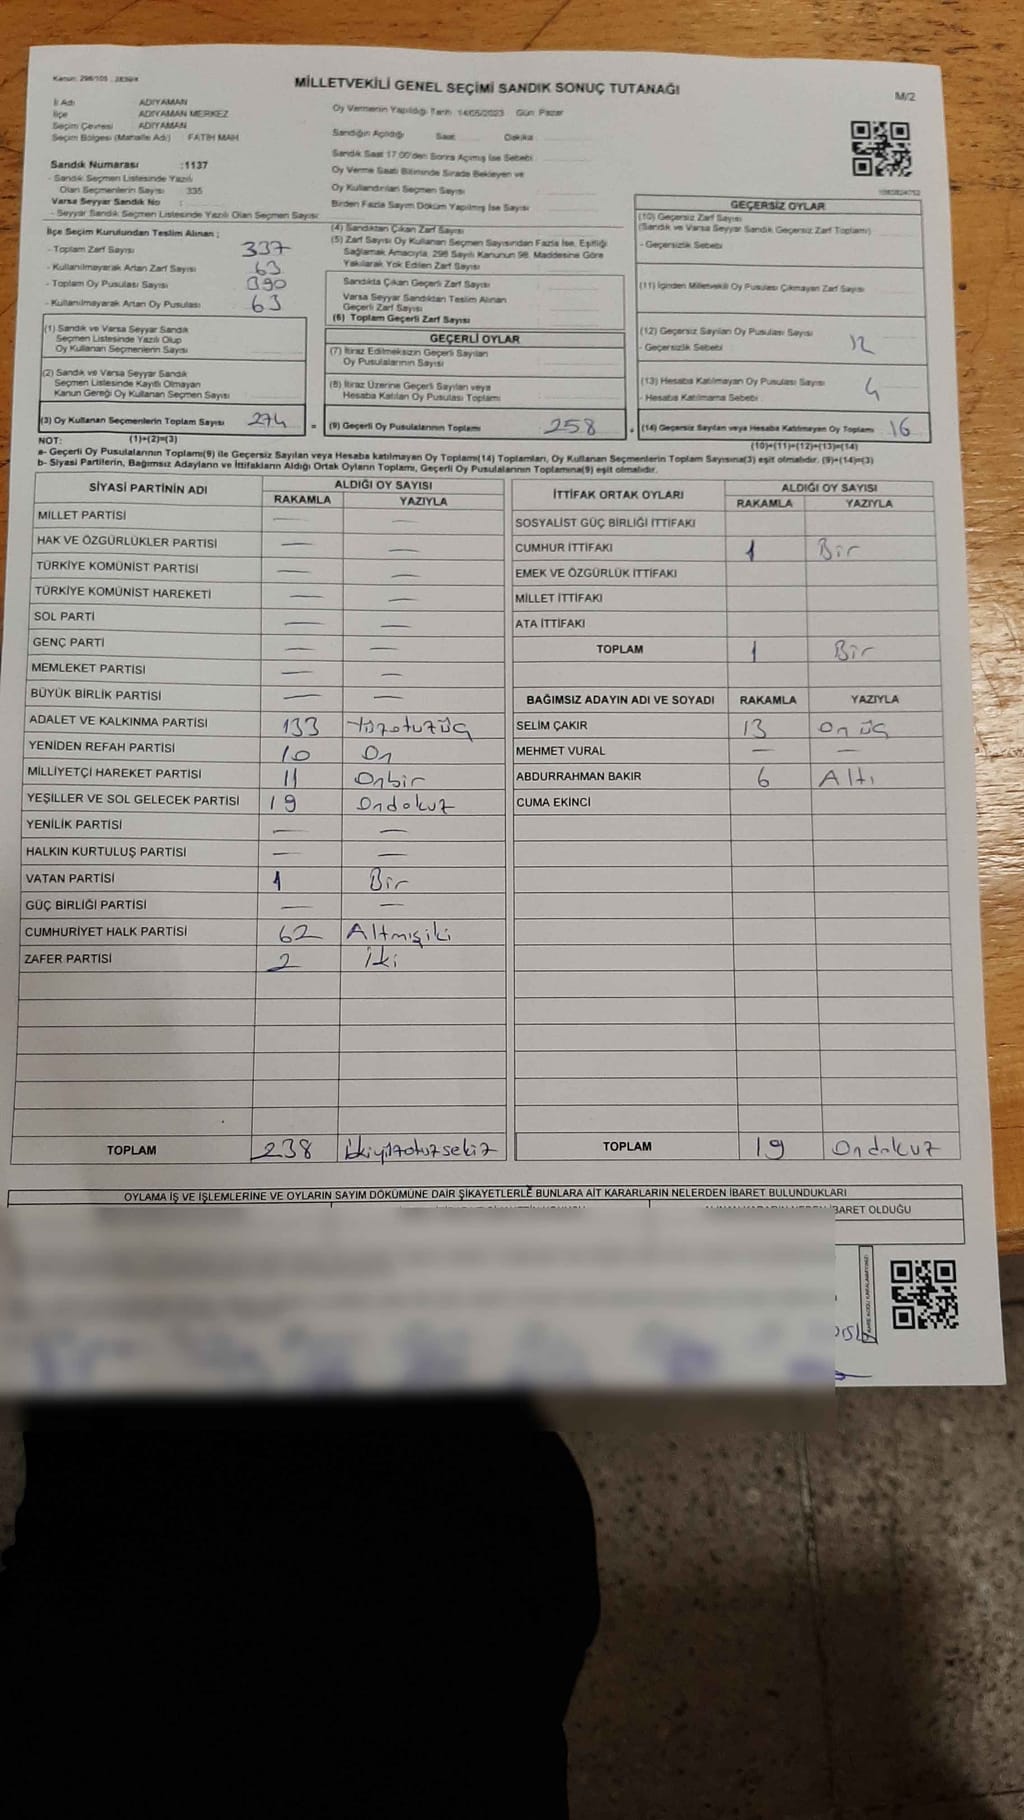 MİLLETVEKİLİ GENEL SEÇİMİ SANDIK SONUÇ TUTANAĞI
M/2
İl Adı ADIYAMAN
İlçe ADIYAMAN MERKEZ
Seçim Çevresi ADIYAMAN
Seçim Bölgesi (Mahalle Adı) FATİH MAH
Sandık Numarası :1137
- Sandık Seçmen Listesinde Yazılı
Olan Seçmenlerin Sayısı 335
Varsa Seyyar Sandık No :
- Seyyar Sandık Seçmen Listesinde Yazılı Olan Seçmen Sayısı:
Oy Vermenin Yapıldığı Tarih: 14/05/2023 Gün: Pazar
Sandığın Açıldığı Saat Dakika
Sandık Saat 17:00'den Sonra Açılmış İse Sebebi
Oy Verme Saati Bitiminde Sırada Bekleyen ve
Oy Kullandırılan Seçmen Sayısı
Birden Fazla Sayım Döküm Yapılmış İse Sayısı
İlçe Seçim Kurulundan Teslim Alınan ;
- Toplam Zarf Sayısı 337
- Kullanılmayarak Artan Zarf Sayısı 63
- Toplam Oy Pusulası Sayısı 390
- Kullanılmayarak Artan Oy Pusulası 63
(1) Sandık ve Varsa Seyyar Sandık
Seçmen Listesinde Yazılı Olup
Oy Kullanan Seçmenlerin Sayısı
(2) Sandık ve Varsa Seyyar Sandık
Seçmen Listesinde Kayıtlı Olmayan
Kanun Gereği Oy Kullanan Seçmen Sayısı
(3) Oy Kullanan Seçmenlerin Toplam Sayısı 274 =
(4) Sandıktan Çıkan Zarf Sayısı
(5) Zarf Sayısı Oy Kullanan Seçmen Sayısından Fazla İse, Eşitliği
Sağlamak Amacıyla, 298 Sayılı Kanunun 98. Maddesine Göre
Yakılarak Yok Edilen Zarf Sayısı
Sandıkta Çıkan Geçerli Zarf Sayısı
Varsa Seyyar Sandıktan Teslim Alınan
Geçerli Zarf Sayısı
(6) Toplam Geçerli Zarf Sayısı
GEÇERLİ OYLAR
(7) İtiraz Edilmeksizin Geçerli Sayılan
Oy Pusulalarının Sayısı
(8) İtiraz Üzerine Geçerli Sayılan veya
Hesaba Katılan Oy Pusulası Toplamı
(9) Geçerli Oy Pusulalarının Toplamı 258 +
GEÇERSİZ OYLAR
(10) Geçersiz Zarf Sayısı
(Sandık ve Varsa Seyyar Sandık Geçersiz Zarf Toplamı)
- Geçersizlik Sebebi
(11) İçinden Milletvekili Oy Pusulası Çıkmayan Zarf Sayısı
(12) Geçersiz Sayılan Oy Pusulası Sayısı 12
- Geçersizlik Sebebi
(13) Hesaba Katılmayan Oy Pusulası Sayısı 4
- Hesaba Katılmama Sebebi
(14) Geçersiz Sayılan veya Hesaba Katılmayan Oy Toplamı 16
NOT: (1)+(2)=(3)
(10)+(11)+(12)+(13)=(14)
a- Geçerli Oy Pusulalarının Toplamı(9) ile Geçersiz Sayılan veya Hesaba katılmayan Oy Toplamı(14) Toplamları, Oy Kullanan Seçmenlerin Toplam Sayısına(3) eşit olmalıdır. (9)+(14)=(3)
b- Siyasi Partilerin, Bağımsız Adayların ve İttifakların Aldığı Ortak Oyların Toplamı, Geçerli Oy Pusulalarının Toplamına(9) eşit olmalıdır.
SİYASİ PARTİNİN ADI ALDIĞI OY SAYISI
RAKAMLA YAZIYLA
MİLLET PARTİSİ — —
HAK VE ÖZGÜRLÜKLER PARTİSİ — —
TÜRKİYE KOMÜNİST PARTİSİ — —
TÜRKİYE KOMÜNİST HAREKETİ — —
SOL PARTİ — —
GENÇ PARTİ — —
MEMLEKET PARTİSİ — —
BÜYÜK BİRLİK PARTİSİ — —
ADALET VE KALKINMA PARTİSİ 133 Yüzotuzüç
YENİDEN REFAH PARTİSİ 10 On
MİLLİYETÇİ HAREKET PARTİSİ 11 Onbir
YEŞİLLER VE SOL GELECEK PARTİSİ 19 Ondokuz
YENİLİK PARTİSİ — —
HALKIN KURTULUŞ PARTİSİ — —
VATAN PARTİSİ 1 Bir
GÜÇ BİRLİĞİ PARTİSİ — —
CUMHURİYET HALK PARTİSİ 62 Altmışiki
ZAFER PARTİSİ 2 İki
TOPLAM 238 İkiyüzotuzsekiz
İTTİFAK ORTAK OYLARI ALDIĞI OY SAYISI
RAKAMLA YAZIYLA
SOSYALİST GÜÇ BİRLİĞİ İTTİFAKI
CUMHUR İTTİFAKI 1 Bir
EMEK VE ÖZGÜRLÜK İTTİFAKI
MİLLET İTTİFAKI
ATA İTTİFAKI
TOPLAM 1 Bir
BAĞIMSIZ ADAYIN ADI VE SOYADI RAKAMLA YAZIYLA
SELİM ÇAKIR 13 On üç
MEHMET VURAL — —
ABDURRAHMAN BAKIR 6 Altı
CUMA EKİNCİ
TOPLAM 19 Ondokuz
OYLAMA İŞ VE İŞLEMLERİNE VE OYLARIN SAYIM DÖKÜMÜNE DAİR ŞİKAYETLERLE BUNLARA AİT KARARLARIN NELERDEN İBARET BULUNDUKLARI
İBARET OLDUĞU